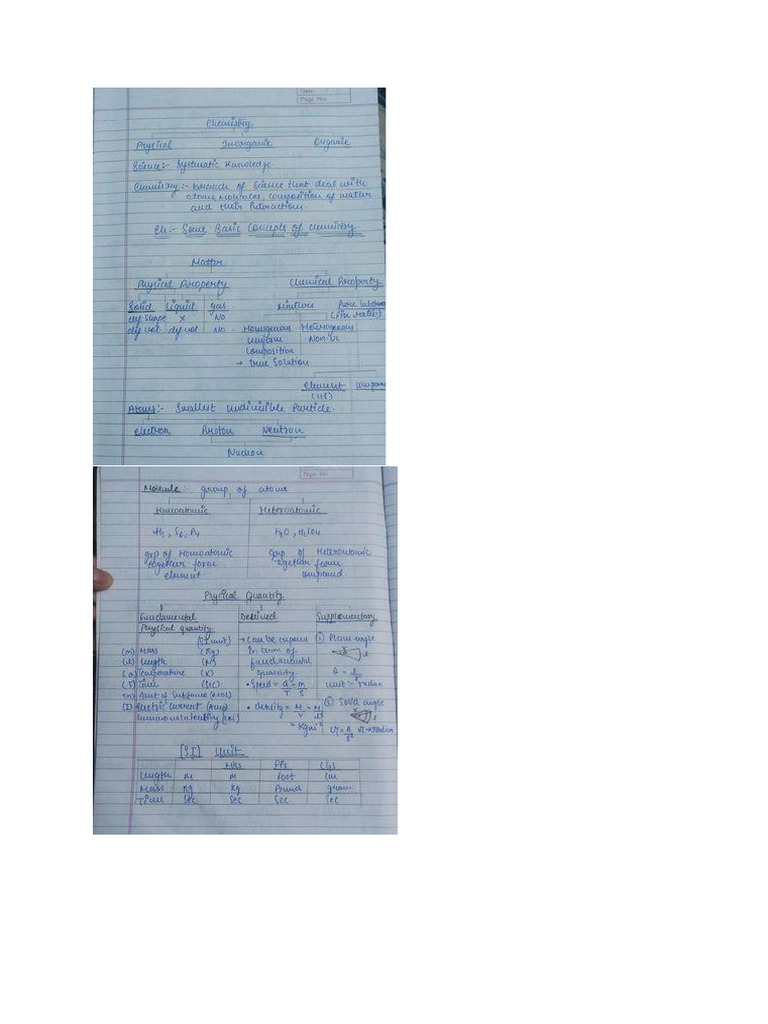 Date:
Page No.
Chemistry
Physical Inorganic Organic
Science:- Systematic Knowledge.
Chemistry:- branch of Science that deal with
atoms, molecules, composition of matter
and their Interaction.
Ch:- Some Basic Concepts of chemistry
Matter
Physical Property Chemical Property
Solid Liquid gas Mixture Pure
def shape X No
def vol def vol No Homogenous Heterogenous
uniform Non-u
composition
→ true solution
Element
(118)
Atoms:- Smallest indivisible Particle.
electron Proton Neutron
Nucleon
Page No.
Molecule:- group of atoms
Homoatomic Heteroatomic
H2, S8, P4 H2O, H2SO4
grp of Homoatomic grp of Heteroatomic
together form together form
element compound
Physical Quantity
Fundamental Derived Supplementary
Physical quantity.
(SI unit) → Can be in (1) Plane angle
(m) Mass (Kg) In term of
(l) length (M) fundamental
Temperature (K) quantity
(T) time (Sec) • Speed = d = m unit:- radian
T S
(n) Amt of Substance (mol) Solid angle
(I) electric current (Amp) • density = M = M
luminous intensity V
= Kgm
[SI] Unit
MKS FPS CGS
length M M Foot Cm
Mass Kg Kg Pound gram
Time Sec Sec Sec Sec